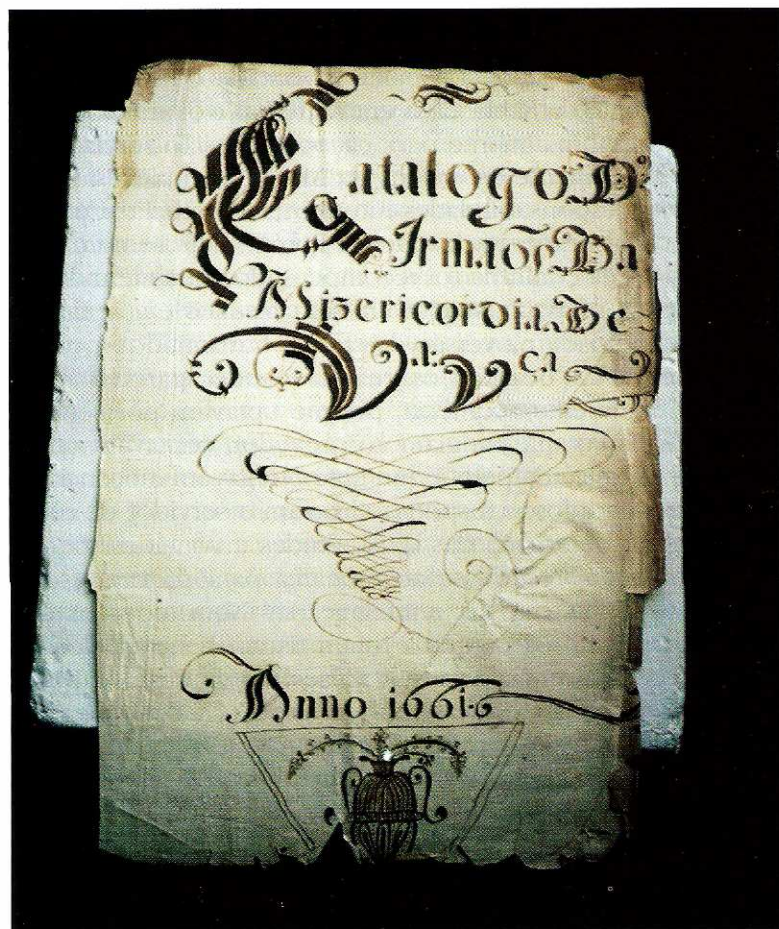 Catalogo Dos
Irmãos Da
Mizericordia De
Va: Vça
Anno 1661